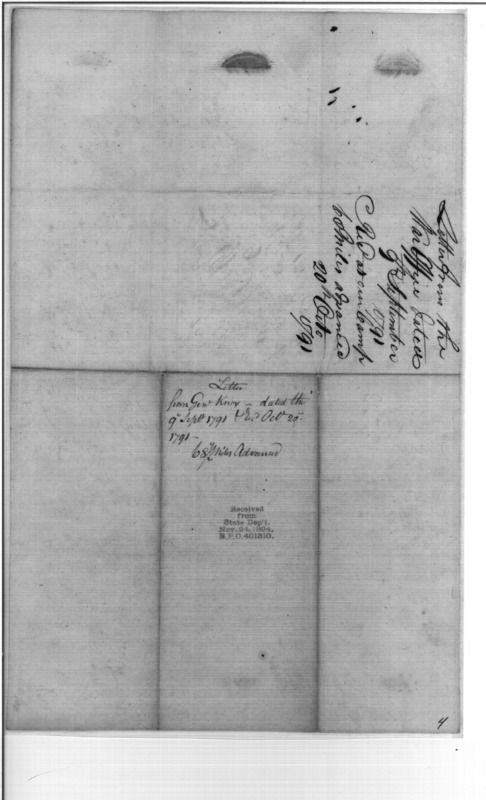 Letter from the
War Office dated
9th September
1791
Recd at our Camp
68 Miles advanced
20th Octo
1791
Letter
from Genl Knox — dated the
9th Sept 1791 & Recd Octr 20th
1791 —
68 Miles Advanced
Received
from
State Dep't.
Nov. 24, 1894.
R.P.O. 401310.
4